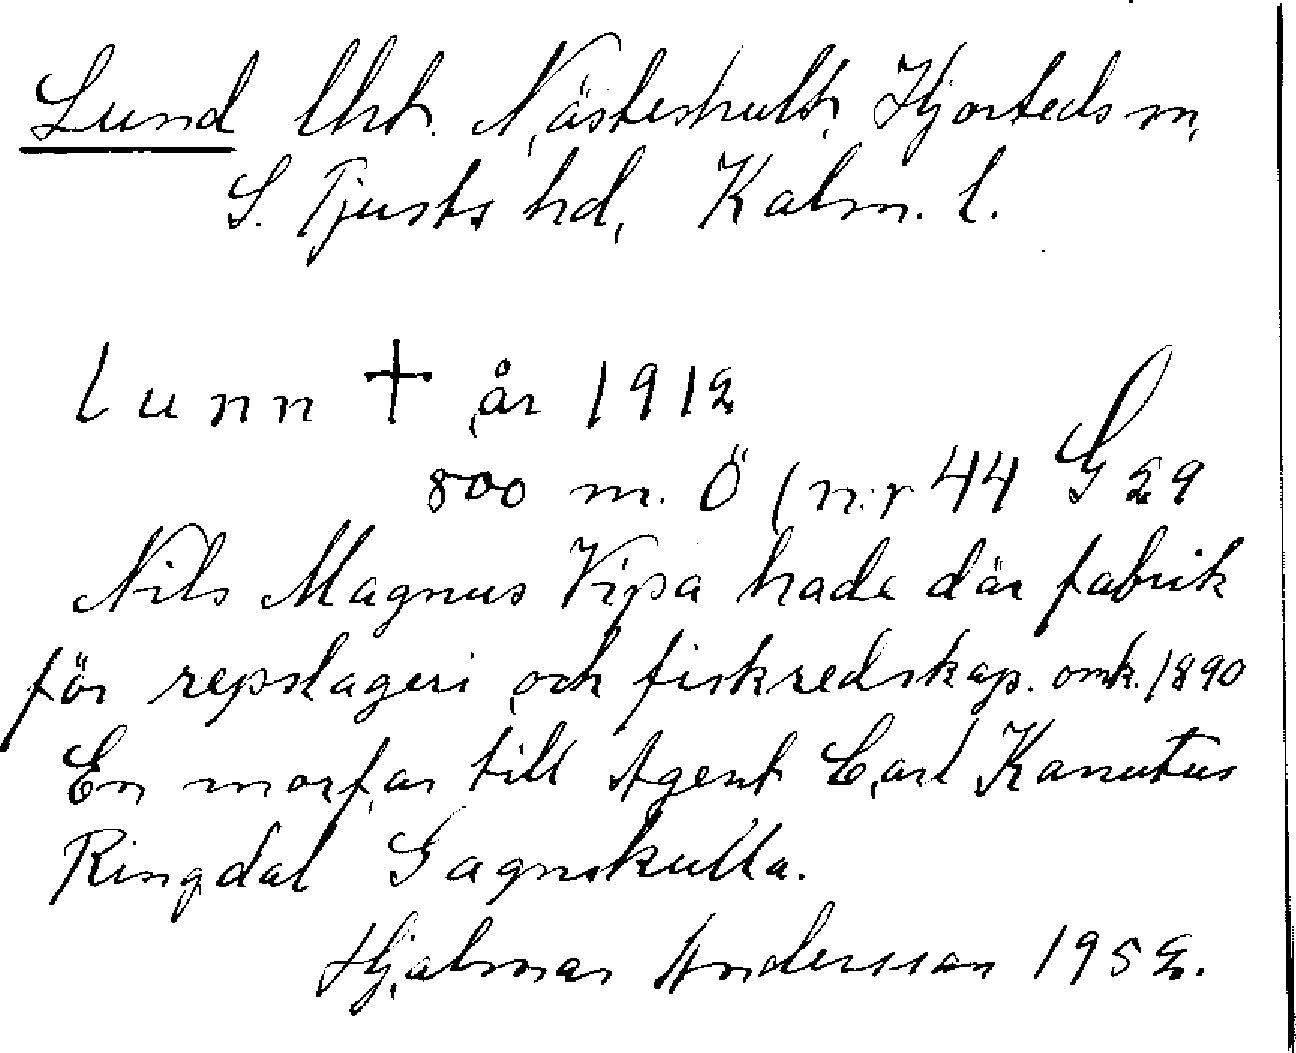 Lund lht. Nästeshult, Hjorteds sn,
S. Tjusts hd, Kalm. l.
Lunn † år 1912
800 m. Ö (n:r 44 G 29
Nils Magnus Vipa hade där fabrik
för repslageri och fiskredskap. omk. 1890
En morfar till Agent Carl Kanutus
Ringdal Gagnskulla.
Hjalmar Andersson 1952.